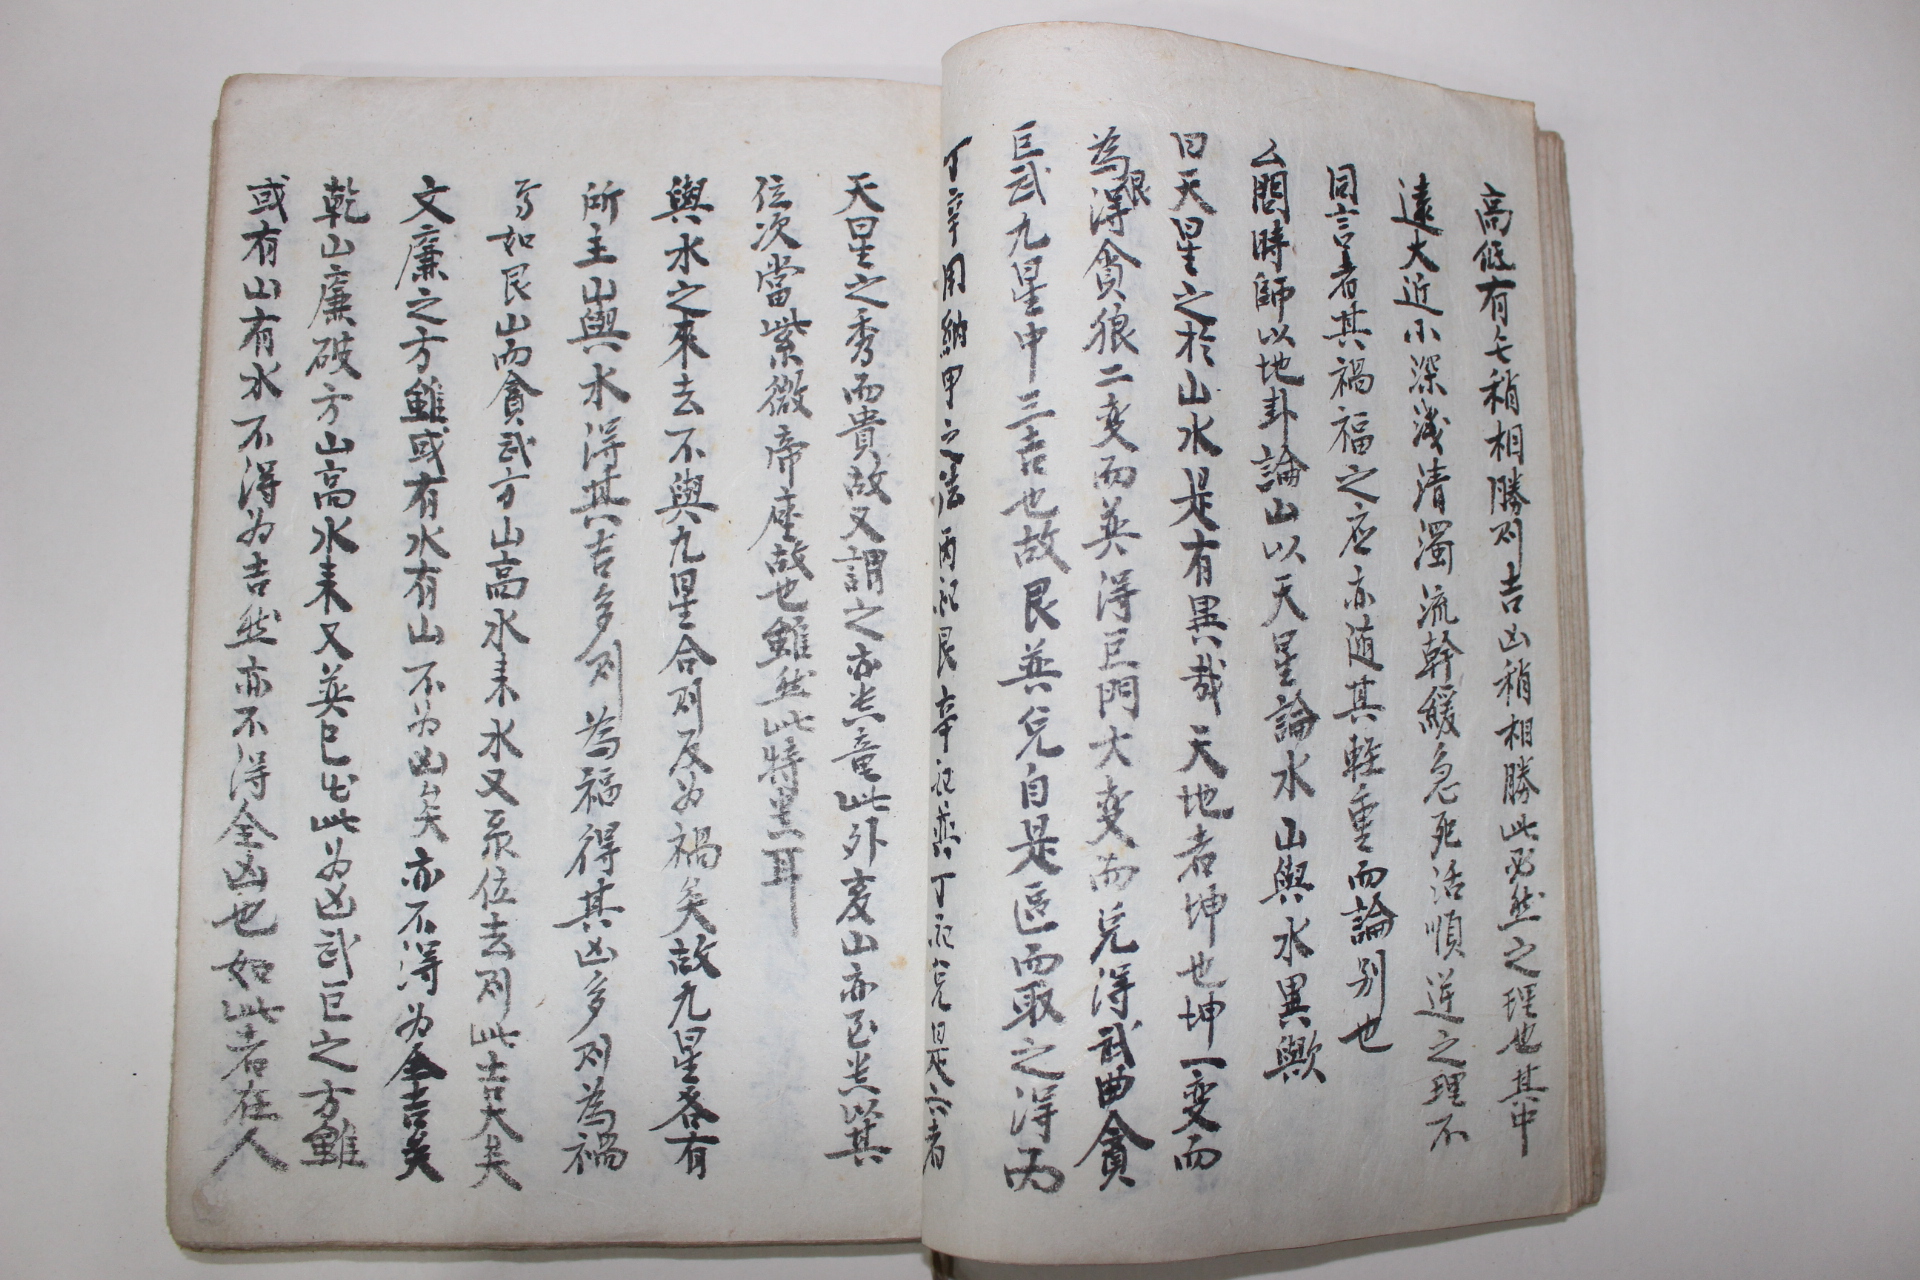 高低有無稍相勝則吉凶稍相勝此必然之理也其中
遠大近小深淺清濁流幹緩急死活順逆之理不
同言者其禍福之应亦随其軽重而論别也
厶問時師以地卦論山以天星論水山與水異歟
曰天星之於山水是有異哉天地者坤也坤一変而
為艮得貪狼二变而巽得巨門大变而兌得武曲貪
巨武九星中三吉也故艮巽兌自是區而取之得丙
丁辛用納甲之法丙配艮辛配巽丁配兌是六者
天星之秀而貴故又謂之亦吉竜此外亥山亦吉以其
位次當紫微帝座故也雖然此特里耳
與水之來去不與九星合則反为禍矣故九星各有
所主山與水得其吉多則為福得其凶多則為禍
如艮山而貪武方山高水耒水又位去則此吉大矣
文廉之方雖或有水有山不为凶矣亦不得为全吉矣
乾山廉破方山高水耒又巽巳出此为凶武巨之方雖
或有山有水不得为吉然亦不得全凶也如此者在人